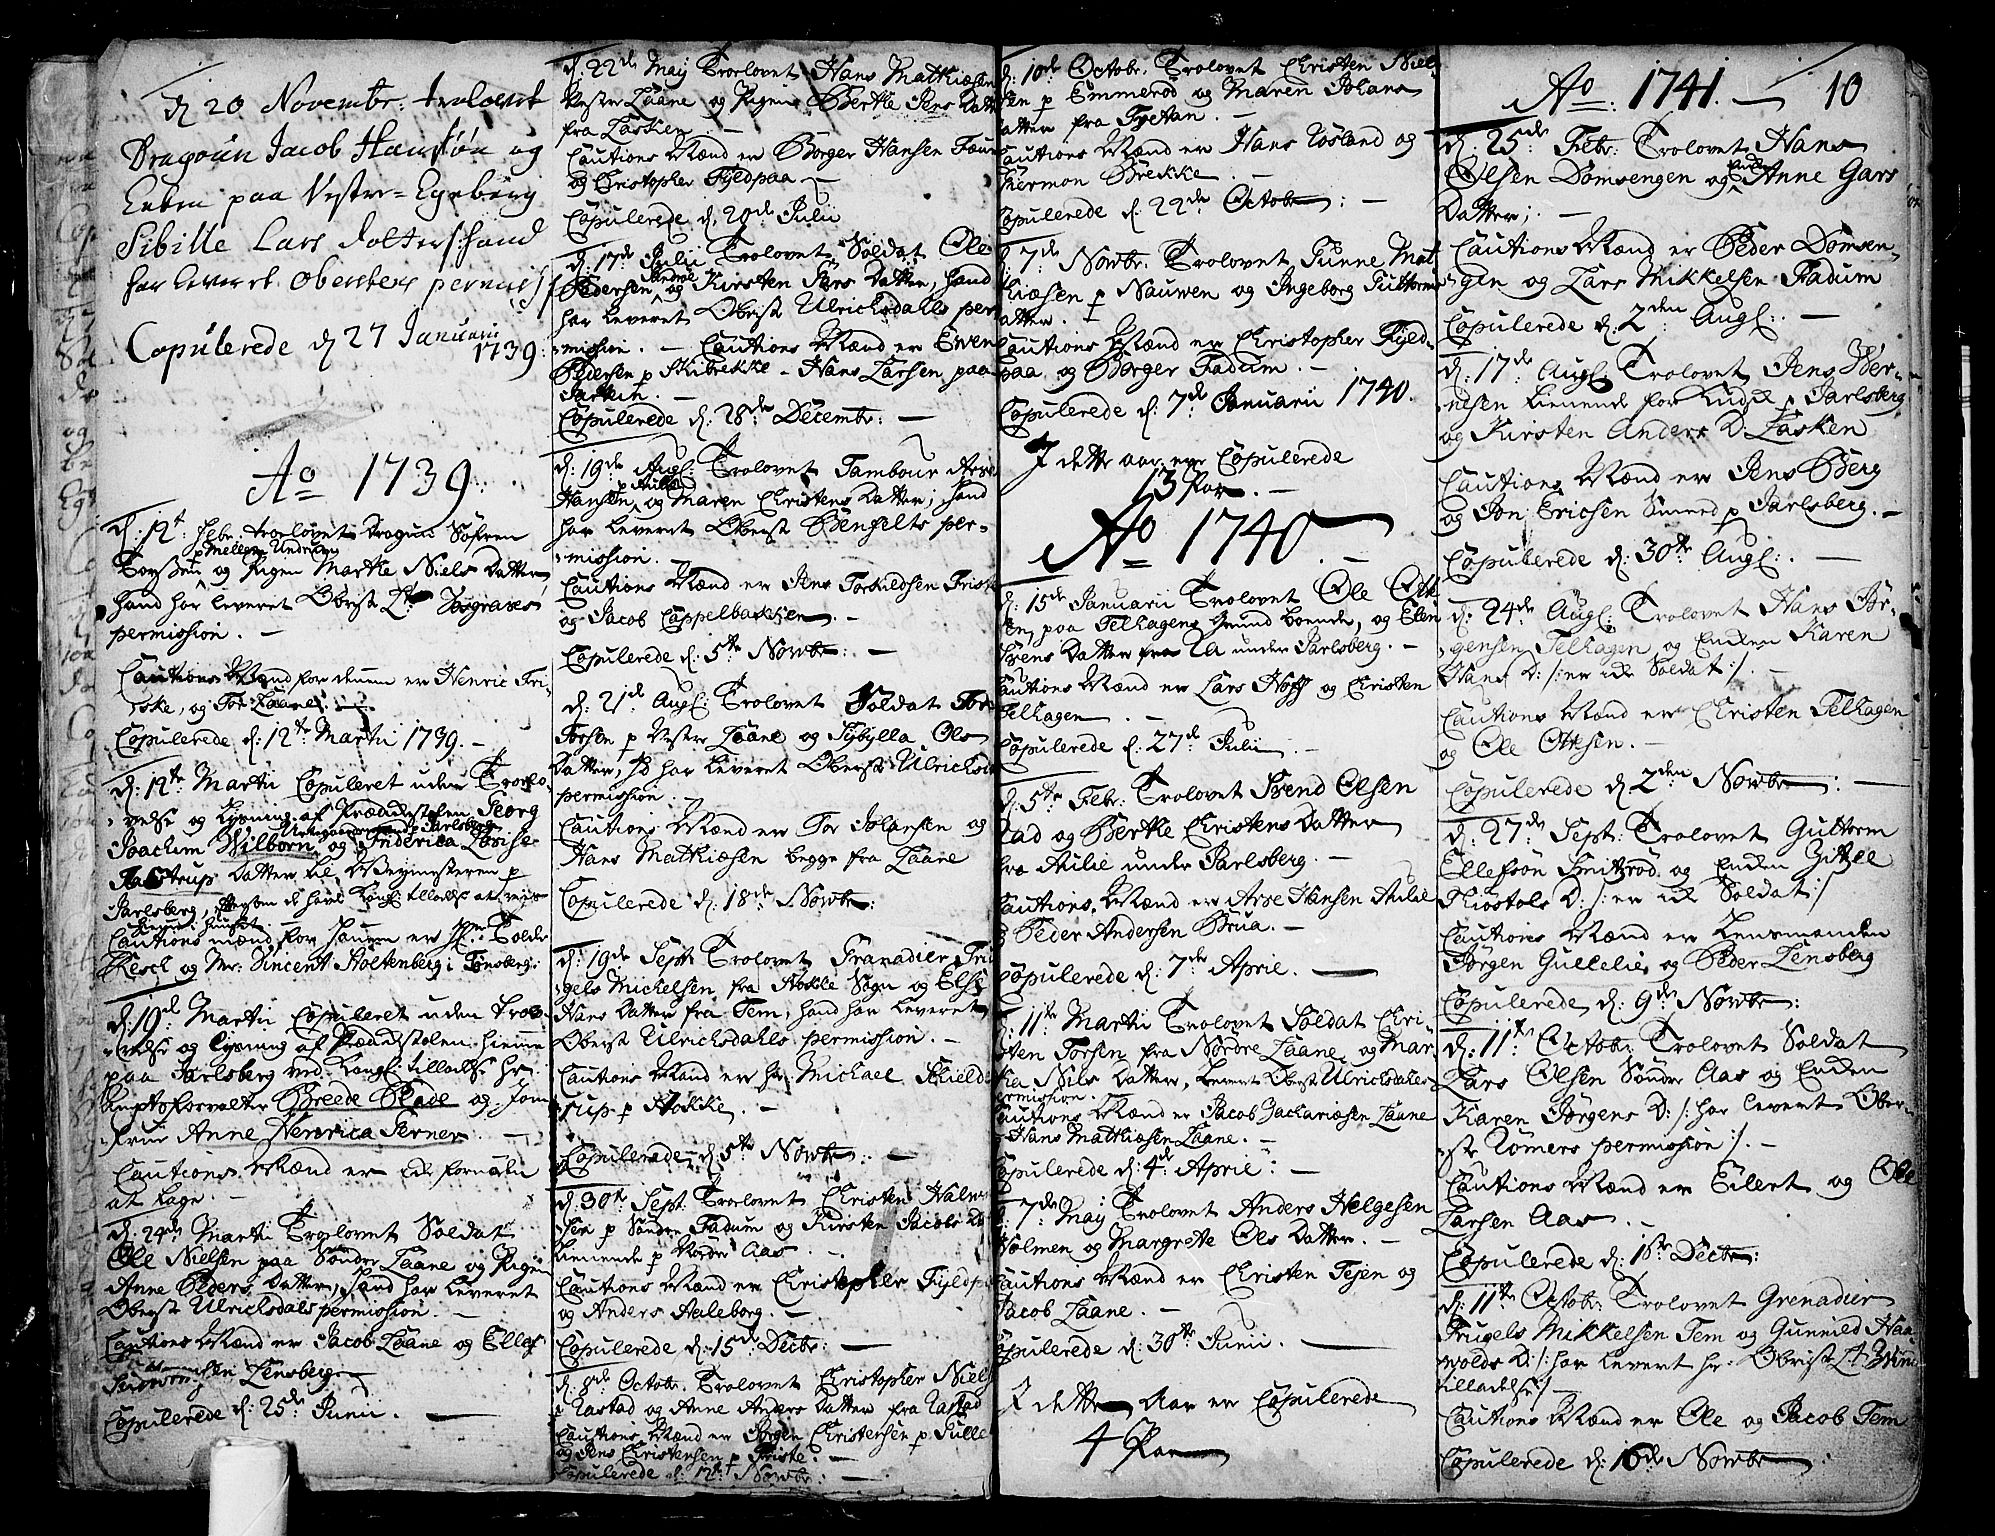 d. 20 Novembr: trolovet
Dragoun Jacob Hansøn og
Enken paa Vestre-Egeberg
Sibille Lars dotter /: hand
har levert Oberstens permis:/
Copulerede d 27 Januarii
1739.
Ao 1739.
d: 12t Febr. trolovet Dragun Søfren
p Mellem Undrum
og Pigen Marthe Niels Datter
hand har leveret Obrist Lt
permission. -
Cautions Mænd for denem er Henric Fri-
ske, og Tor Laane.
Copulerede d: 12te Martii 1739. -
d: 12te Martii Copuleret uden Trolo-
velse og Lysning af Prædikestolen Georg
Joachim Wilborn og Friderica Lovise
Datter til
Jarlsberg,
Cautions mænd for er Hr. Tolder
Resch og Mr. Vincent Stoltenberg i Tønsberg.
d: 19de Martii Copuleret uden Trolo-
velse og lysning af Prædikestolen hiemme
paa Jarlsberg ved Kongl: tilladelse Hr.
Breede Plade og Jom-
fruer Anne Henrica Ferner. -
Cautions Mænd er icke fornøden
at tage. -
d: 24de Martii Trolovet Soldat
Ole Nielsen paa Søndre Laane og Pigen
Anne Peders Datter, hand har leveret
Oberst Ulrichsdals permission. -
Cautions Mænd er Jacob Laane og Ellef
Lensberg
Copulerede d: 25de Junii. -
d: 22de May Trolovet Hans Mathiæsen
Vestre Laane og Pigen Berthe Jens Datter
fra Lasken -
Cautions Mænd er Borger Hansen
og Christopher Fyldpaa -
Copulerede d. 20de Julii
d: 17de Julii Trolovet Soldat Ole
Pedersen og Kirsten Datter, hand
har leveret Obrist Ulrichsdahls per-
mission. - Cautions Mænd er Even
Pedersen p Skibrekke - Hans Larsen paa
Copulerede d: 28de Decembr: -
d: 19de Augl: Trolovet Tambour Arve
p Aulie
Hansen og Maren Christens Datter; hand
har leveret Oberst Benfelts per-
mission. -
Cautions Mænd er Jens Torkildsen Friste
og Jacob Cappelbachen. -
Copulerede d: 5te Novbr: -
d: 21de Augl: Trolovet Soldat Tor
Torsen p Vestre Laane og Sybylla Ols
Datter, har leveret Oberst Ulrichsd
permission. -
Cautions Mænd er Tor Johansen og
Hans Mathiæsen begge fra Laane
Copulerede d: 18de Novbr:
d: 19de Septr Trolovet Granadier Tru-
gels Michelsen fra Stokke Sogn og Else
Hans Datter fra Tem, hand har leveret
Oberst Ulrichsdahls permission. -
Cautions Mænd er hr Michael Skield-
rup p Stokke. -
Copulerede d: 5te Novbr: -
d: 30te Sept Trolovet Christen Halvor-
sen p Søndre Fadum og Kirsten Jacobs D.
tienende p Nordre Aas. -
Cautions Mænd er Christopher Fyldpaa
og Anders Aaleborg. -
Copulerede d: 15de Decbr: -
d. 8de Octobr. Trolovet Christopher Niels
Rastad og Anne Anders Datter fra Rastad
Cautions Mænd er Jørgen Christensen p.
og Jens Christensen p Friste. -
Copulerede d: 12te Novbr: -
d: 10de Octobr. Trolovet Christen Niel-
sen p Emmerød og Maren Johans
Datter fra -
Cautions Mænd er Hans Røsland og
Thermon Brekke. -
Copulerede d: 22de Octobr: -
d: 7de Novbr. Trolovet Tunne Mat-
hiæsen p Nauwen og Ingeborg Guttorms
Datter. -
Cautions Mænd er Christopher Fyld-
paa og Borger Fadum. -
Copulerede d: 7de Januarii 1740.
I dette aar ere Copulerede
13 Par. -
Ao 1740. -
d: 15de Januarii Trolovet Ole Ott-
sen, paa Felhagens Grund boende, og Elen
Sørens Datter fra Ra under Jarlsberg. -
Cautions Mænd er Lars Hoff og Christen
Felhagen. -
Copulerede d: 27de Julii. -
d: 5te Febr: Trolovet Svend Olsen
Rad og Berthe Christens Datter
fra Aulie under Jarlsberg. -
Cautions Mænd er Arve Hansen Aulie
og Peder Andersen Brua. -
Copulerede d: 7de April. -
d: 11te Martii Trolovet Soldat Chri-
sten Torsen fra Nordre Laane, og Mar-
the Nils Datter, leveret Oberst Ulrichsdahls
permission. -
Cautions Mænd er Jacob Zachariæsen Laane
Hans Mathiæsen Laane. -
Copulerede d: 4de April: -
d: 7de May Trolovet Anders Helgesen
Holmen og Margrete Ols Datter. -
Cautions Mænd er Christen Tejen og
Jacob Laane. -
Copulerede d: 30te Junii. -
I dette Aar er Copulerede
4 Par
Ao 1741. - 10
d: 25de Febr: Trolovet Hans
Olsen Domsengen og Enken Anne Gars
Datter; -
Cautions Mænd er Peder Domsen-
gen og Lars Mikkelsen Fadum
Copulerede d. 2den Augl: -
d: 17de Augl Trolovet Jens Wer-
nesen tienende for Kudsk p Jarlsberg
og Kirsten Anders D: Lasken
Cautions Mænd er Jens Berg
og Jon Ericsen Smed p Jarlsberg. -
Copulerede d: 30te Augl: -
d: 24de Augl: Trolovet Hans Jør-
gensen Felhagen og Enken Karen
Hans D: /: er icke Soldat :/. -
Cautions Mænd er Christen Felhagen
og Ole Ottesen. -
Copulerede d: 2den Novbr: -
d: 27de Sept: Trolovet Guttorm
Ellefsøn Smitzrød og Enken Zitzel
Kiøstols D: /: er icke Soldat :/
Cautions Mænd er Lensmanden
Jørgen Gullelie, og Peder Lensberg
Copulerede d: 9de Novbr:
d: 11te Octobr: Trolovet Soldat
Lars Olsen Søndre Aas og Enken
Karen Jørgens D: /: har levert Ober-
ste Rømers permission :/. -
Cautions Mænd er Eilert og Ole
Larsen Aas. -
Copulerede d: 16te Decbr:
d: 11te Octobr: Trolovet Grenadier
Trugels Mikkelsen Tem og Gunnild Haa-
wolds D: /: har levert hr: Obrist Lt
tilladelse :/ -
Cautions Mænd er Ole og Jacob Tem
Copulerede d: 16de Novbr: